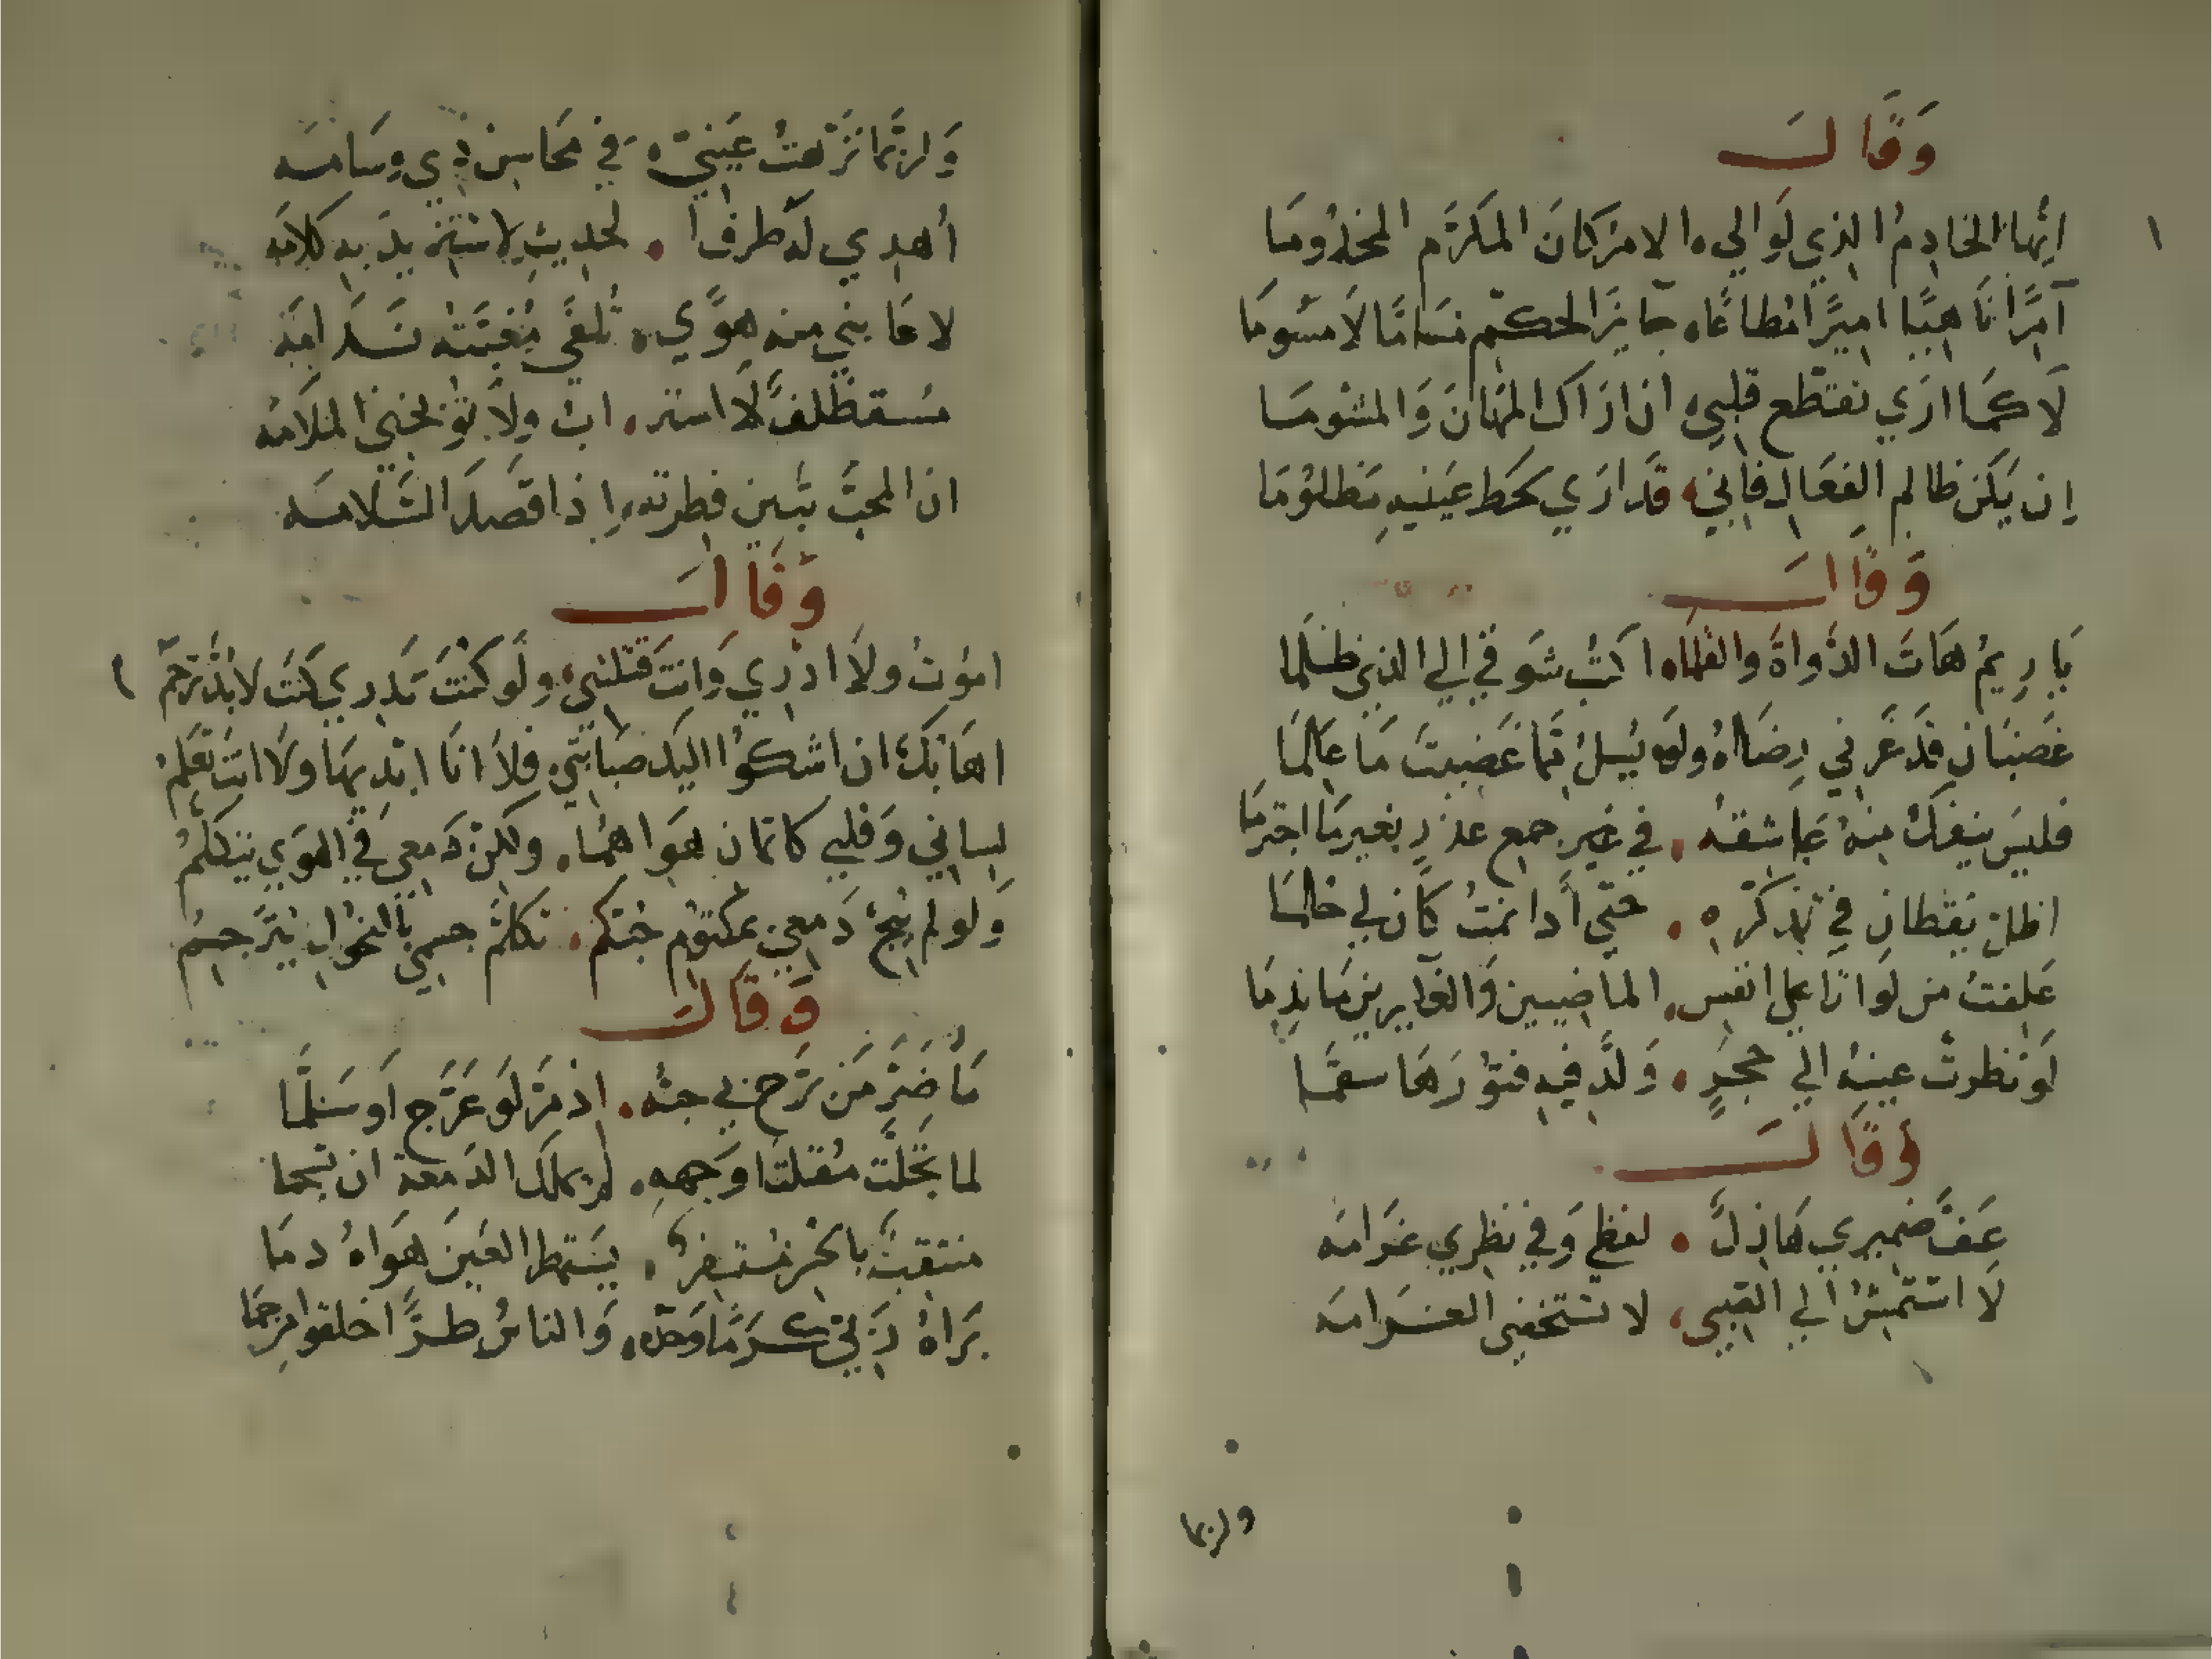 وَقَالَ
ايُّها الخادِمُ الذي لَوْ الي ه الامر كانَ المكرَّم المخدُومَا
آمِرًا نَاهِيًا اميرًا مُطاعًا ه جايزَ الحكم سَامًا لَا مسُومَا
لَا كمَا ارَي تقطّع قلبي ه ان اراك المُهَانَ وَالمشومَا
إن يَكن ظالم الفعَال فاني ه قَد ارَي لحَظ عَينيهِ مَظلُومَا
وَقَالَ
يَا رِيمُ هَاتَ الدَّواةَ والقلما ه اكتُب شَوقي الي الذي ظلمَا
غَضبَان قد غَرني رِضَاهُ ولو يُسلُ مما غَضِبتَ مَا عَلمَا
فليسَ ينفكُ منهُ عَاشقهُ ه في غير جمع عذرٍ بغير مَا اجترمَا
اظل يَقظان في تذكّره ه حتي اذا نمتُ كان لي حَالمَا
عَلِقتُ من لَو اتا علي انفس ه الماضيين وَالغابرين مَا ندِمَا
لَو نظرتْ عينهُ الي حجَرٍ ه وَلَّد فيهِ فتوُرهَا سقمَا
وَقَالَ
عَفَّ ضميري هَازلٌ ه لفظي وَفي نظري عَرَامَه
لَا استَمشُ الي القبيح ه لا تستخفني العرامَه
ولربما
وَلربَّما نزَّهتُ عَينيَّ ه في محَاسِن ذي وِسَامَه
اُهدي لهُ طرفًا ه لحديثٍ استزيدُ بهِ كلامَه
لا عَابني منه هوًي ه تُلقَي مُغبَّتهُ نَدامَه
ان المحبَّ تبين فطرته ه إذا قصدَ السَّلامَه
وَقَالَ
اموُتُ ولَا ادري وَانتَ قتلتني ه ولَو كنتَ تَدري كنتَ لا بُدَّ ترحَمُ
اهَابُكَ ان اشكوُا اليكَ صَبَابَتي ه فلَا انَا ابْدِيهَا ولَا انتَ تَعلمُ
لِساني وَقلبي كاتمان هَواهمَا ه ولكنّ دَمعي في الهَوَي يتكلمُ
وَلو لم يَبُحْ دَمعي بمكتوُم حُبّكم ه تكلَّم جسمي بالنحُول يُترَجمُ
وَقَالَ
مَا ضَرَّ مَن بَرَّح بي حبُّه ه اذ مَرَّ لَو عَرَّج اَو سَلَّمَا
لما تجَلَّت مُقلتَا وَجههِ ه لم يملك الدَمعة ان تسجما
يَستَمطر العَين هَوَاهُ دمَا
بَرَاهُ رَبِّي كرَمًا وَحدَه ه وَالناسُ طُرًّا خلقوا مِن حَمَا